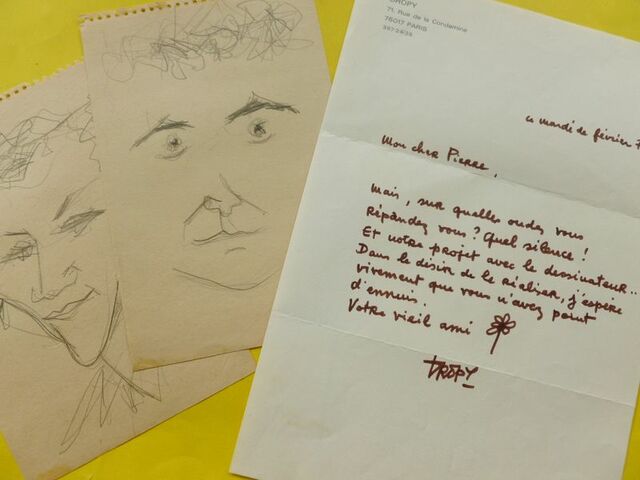 DROPY
71, Rue de la Condamine
76017 PARIS
387-28-39
ce mardi de février 7
Mon cher Pierre,
Mais, sur quelles ondes vous
répandez vous ? Quel silence !
Et notre projet avec le dessinateur...
Dans le désir de le réaliser, j'espère
vivement que vous n'avez point
d'ennuis.
Votre vieil ami
DROPY